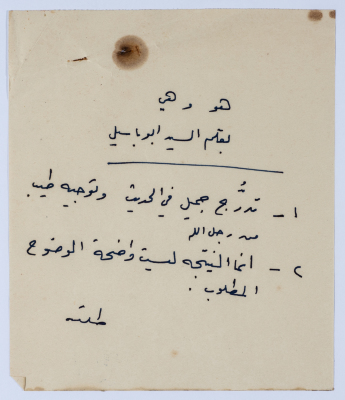 هو وهي
بقلم السيد ابو باسيل
١ - تدرُّج جميل في الحديث وتوجيه طيب
من رجل الله
٢ - انما النتيجه ليست واضحة الوضوح
المطلوب .